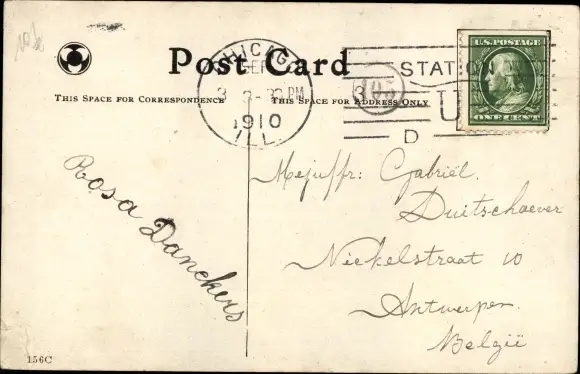 Post Card
THIS SPACE FOR CORRESPONDENCE
THIS SPACE FOR ADDRESS ONLY
CHICAGO
SEP
3 PM
1910
ILL.
STATION
U
D
105
U.S. POSTAGE
ONE CENT
Rosa Danckers
Mejuffr: Gabriël.
Duitschaever
Nickelstraat 10
Antwerpen.
België
156C